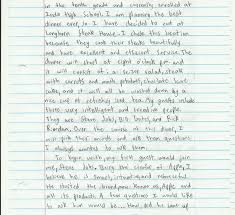 in the tenth grade and currently enrolled at
High School. I am planning the best
dinner ever, so I have decided to eat at
Longhorn Steak House. I chose this location
because they cook their steaks beautifully
and have excellent and efficient service. The
dinner will start at eight o'clock pm and
it will consist of; a caesar salad, steak
with carrots and mash potatoes, chocolate lava
cake, and it will all be washed down by a
nice cup of refreshing iced tea. My guests include
three very intelligent and talented people.
They are Steve Jobs, Bill Gates, and Rick
Riordan. Over the course of this dinner, I
will pick their minds and ask them questions
I always wanted to ask them.
To begin with, my first guest would join
me, Steve Jobs. Being the creator of Apple, I
believe he is smart, intuitive, and resourceful.
He started the brand now known as, Apple and
all its products. A few questions I would like
to ask him would be... How did he come up